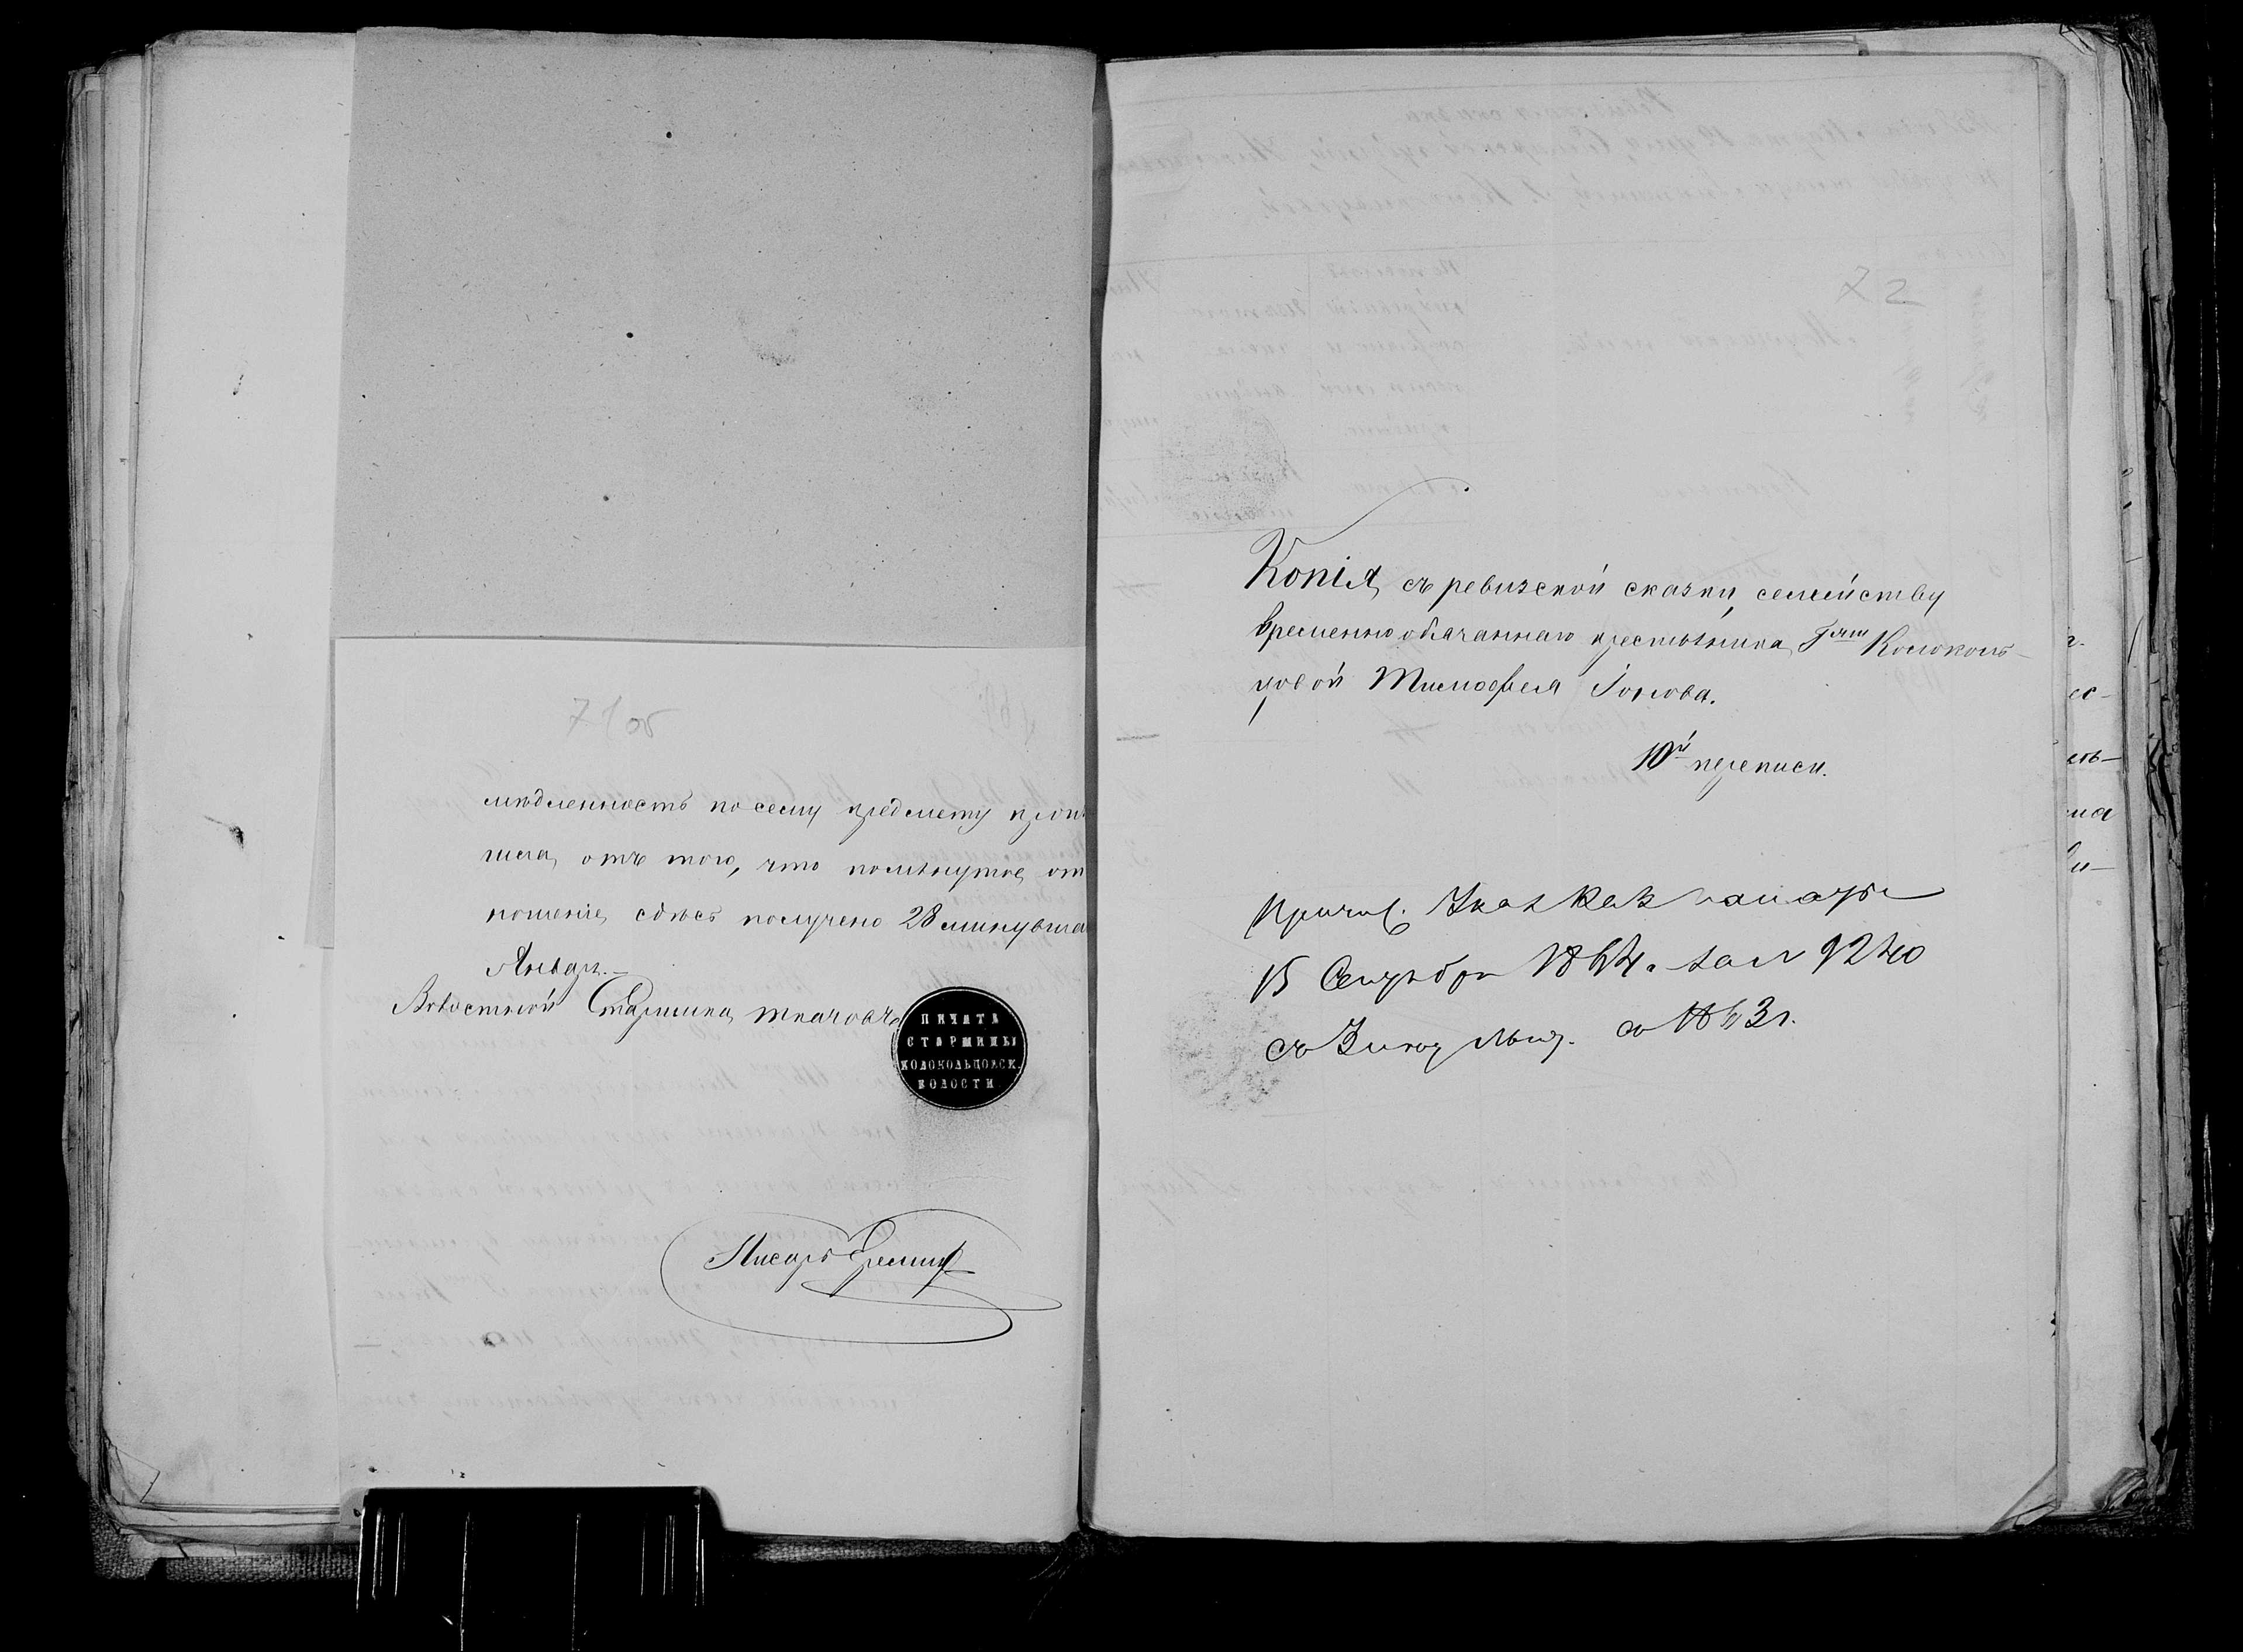 71об
медленность по сему предмету прои
тила, отъ того, что помянутое от
ношеніе, сдѣсь получено 28 минувша
Января.
Волостной Старшина Ткачовъ
ПЕЧАТЬ
СТАРШИНЫ
КОЛОКОЛЬЦОВСК.
ВОЛОСТИ
Писарь Еремин
72
Копія, съ ревизской сказки, семейству
временно обязаннаго крестьянина, Г-жи Колоколь-
цовой Тимофея Іонова.
10й переписи.
Причис. Указ Каз палаты
15 Сентября 1864. за № 9240
со 2 полов. 1863г.